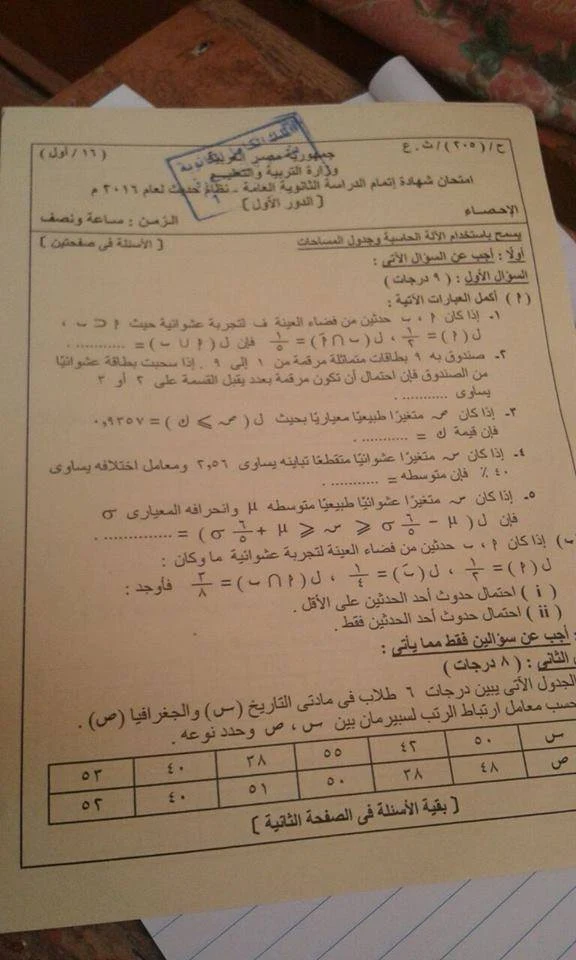 ح / (٢٠٥) / ث . ع
( ١٦ / أول )
جمهورية مصر العربية
وزارة التربية والتعليم
امتحان شهادة إتمام الدراسة الثانوية العامة - نظام حديث لعام ٢٠١٦ م
[ الدور الأول ]
الإحصاء
الزمن : ساعة ونصف
يسمح باستخدام الآلة الحاسبة وجدول المساحات
[ الأسئلة فى صفحتين ]
أولًا : أجب عن السؤال الآتى :
السؤال الأول : ( ٩ درجات )
( ٢ ) أكمل العبارات الآتية :
١- إذا كان ٢ ، ب حدثين من فضاء العينة ف لتجربة عشوائية حيث ٢ ⊃ ب ،
ل ( ٢ ) = ١/٢ ، ل ( ب ∩ ٢َ ) = ١/٥ فإن ل ( ٢ ∪ ب ) = ........... .
٢- صندوق به ٩ بطاقات متماثلة مرقمة من ١ إلى ٩ . إذا سحبت بطاقة عشوائيًا
من الصندوق فإن احتمال أن تكون مرقمة بعدد يقبل القسمة على ٢ أو ٣
يساوى ........... .
٣- إذا كان ص متغيرًا طبيعيًا معياريًا بحيث ل ( ص ⩽ ك ) = ٠,٩٣٥٧
فإن قيمة ك = ........... .
٤- إذا كان س متغيرًا عشوائيًا متقطعًا تباينه يساوى ٢,٥٦ ومعامل اختلافه يساوى
٤٠ ٪ فإن متوسطه = ........... .
٥- إذا كان س متغيرًا عشوائيًا طبيعيًا متوسطه μ وانحرافه المعيارى σ
فإن ل ( μ - ٦/٥ σ ⩽ س ⩽ μ + ٦/٥ σ ) = ............. .
ب) إذا كان ٢ ، ب حدثين من فضاء العينة لتجربة عشوائية ما وكان :
ل ( ٢ ) = ١/٢ ، ل ( بَ ) = ١/٤ ، ل ( ٢ ∩ ب ) = ٣/٨ فأوجد :
( i ) احتمال حدوث أحد الحدثين على الأقل .
( ii ) احتمال حدوث أحد الحدثين فقط .
: أجب عن سؤالين فقط مما يأتى :
الثانى : ( ٨ درجات )
الجدول الآتى يبين درجات ٦ طلاب فى مادتى التاريخ (س) والجغرافيا (ص) .
حسب معامل ارتباط الرتب لسبيرمان بين س ، ص وحدد نوعه .
س ٥٠ ٤٢ ٥٥ ٣٨ ٤٠ ٥٣
ص ٤٨ ٣٨ ٥٠ ٥١ ٤٠ ٥٢
[ بقية الأسئلة فى الصفحة الثانية ]